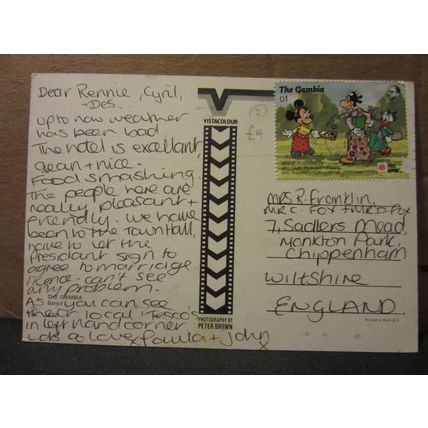 Dear Rennie, Cyril,
+Des.
up to now weather
has been bad
The hotel is excellant,
clean + nice.
Food smashing.
The people here are
really pleasant +
friendly. We have
been to the Town Hall,
have to let the
President sign to
agree to marriage
licence. can't see
any problem.
THE GAMBIA
Banjul
As you can see
their local 'Tesco's
in left hand corner
Lots of Love x Paula + John
x
VISTACOLOUR
PHOTOGRAPHY BY
PETER BROWN
£4
The Gambia
D1
Mrs R. Franklin,
Mr C. Fox + Mr D. Fox
7, Sadlers Mead,
Monkton Park,
Chippenham
Wiltshire
ENGLAND.
Printed in the E.E.C.